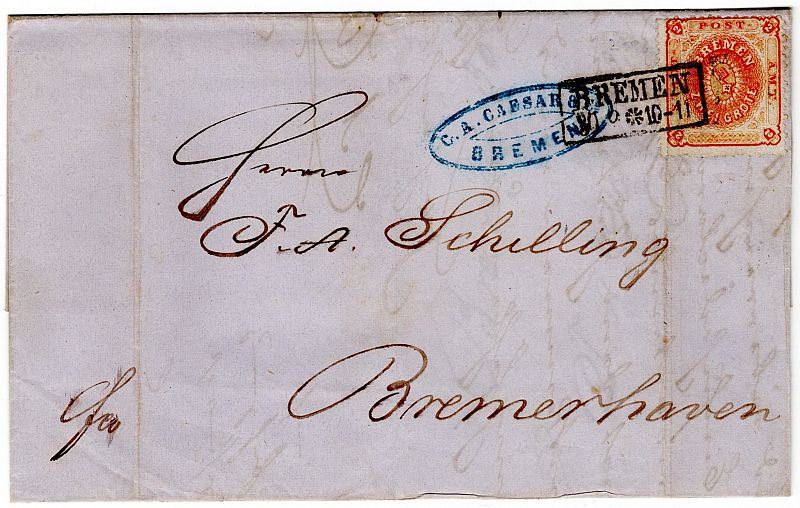 POST
AMT
BREMEN
GROTE
C. A. CAESAR &
BREMEN
BREMEN
10-11
Herrn
F. A. Schilling
Bremerhaven